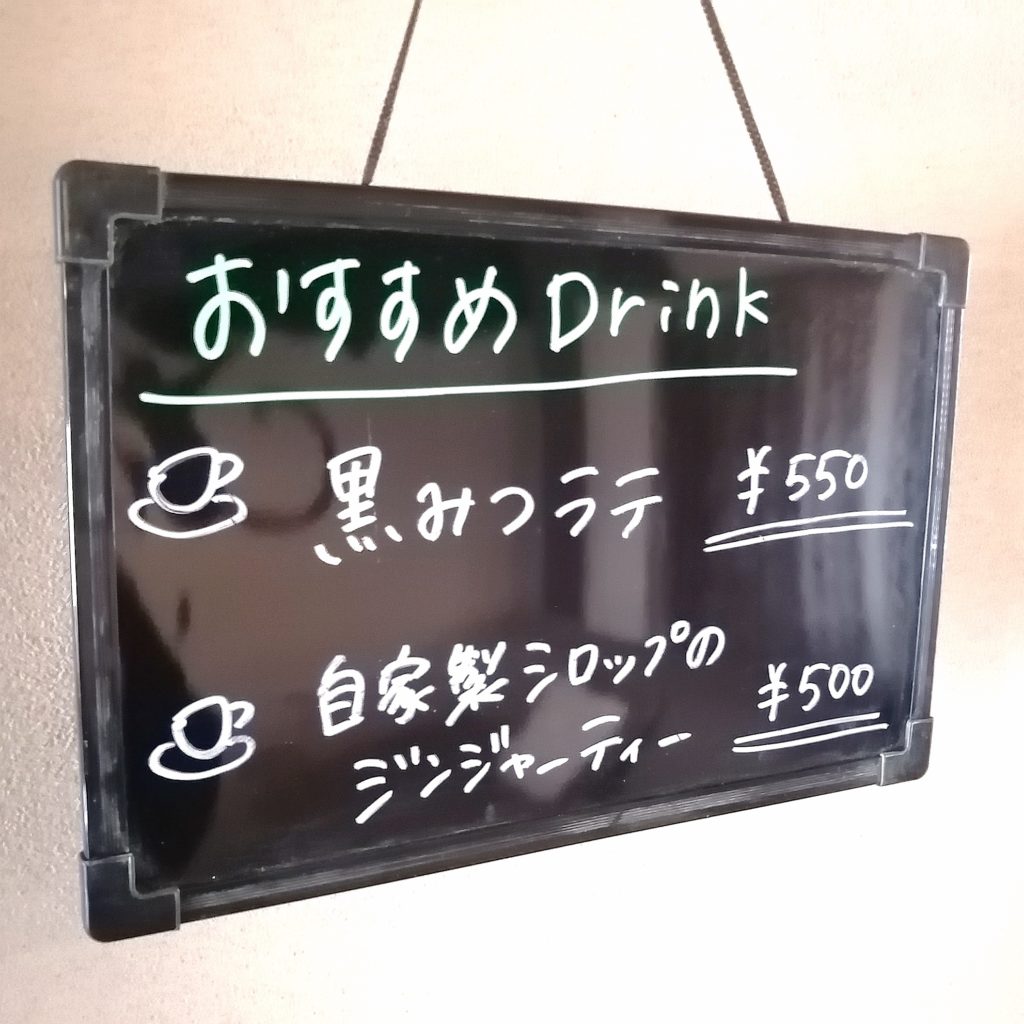 おすすめDrink
黒みつラテ ¥550
自家製シロップの
ジンジャーティー ¥500